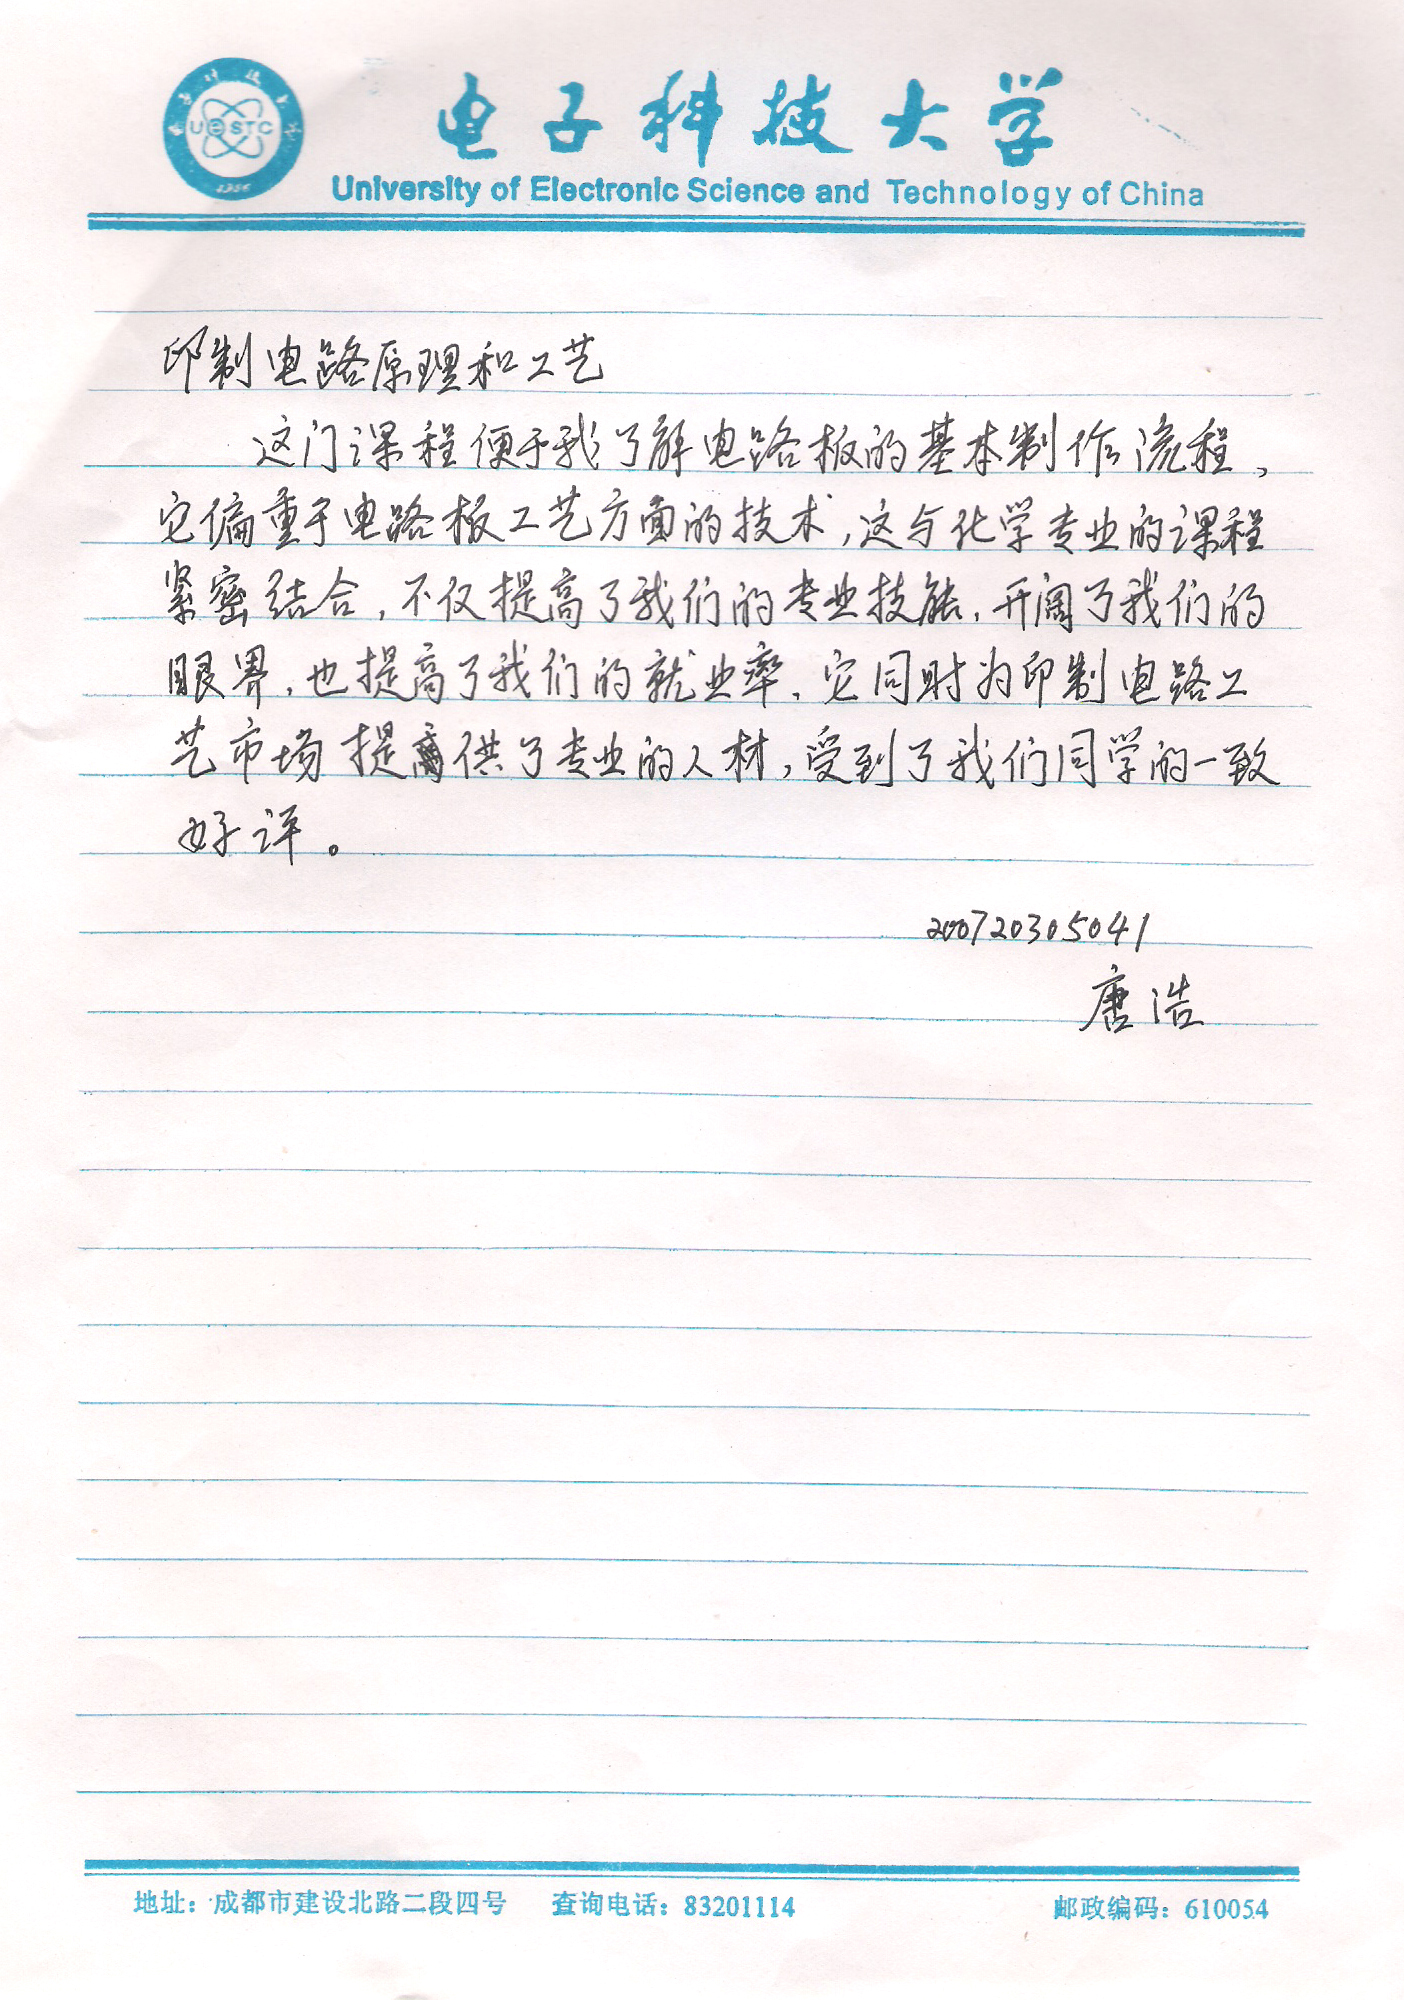 UeSTC
1956
电子科技大学
University of Electronic Science and Technology of China
印制电路原理和工艺
这门课程便于我了解电路板的基本制作流程,
它偏重于电路板工艺方面的技术,这与化学专业的课程
紧密结合,不仅提高了我们的专业技能,开阔了我们的
眼界,也提高了我们的就业率,它同时为印制电路工
艺市场提供了专业的人材,受到了我们同学的一致
好评。
200720305041
唐浩
地址:成都市建设北路二段四号 查询电话:83201114 邮政编码:610054